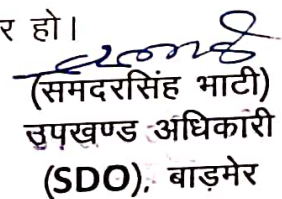 र हो।
(समदरसिंह भाटी)
उपखण्ड अधिकारी
(SDO), बाड़मेर